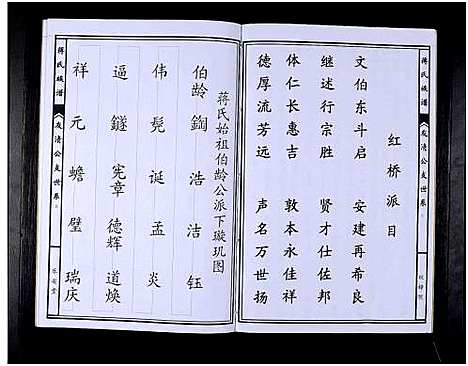 蒋氏族谱
友清公支世系
红桥派目
文伯东斗启 安建再希良
继述行宗思 贤才仕佐邦
体仁长惠吉 敦本永佳祥
德厚流芳远 声名万世扬
蒋氏始祖伯龄公派下璇玑图
伯龄 鋾 浩 洁 钰
伟 髡 诞 孟 炎
逼 鐩 宪章 德辉 道焕
祥 元 蟾 璧 瑞庆
蒋氏族谱
友清公支世系
乐安堂